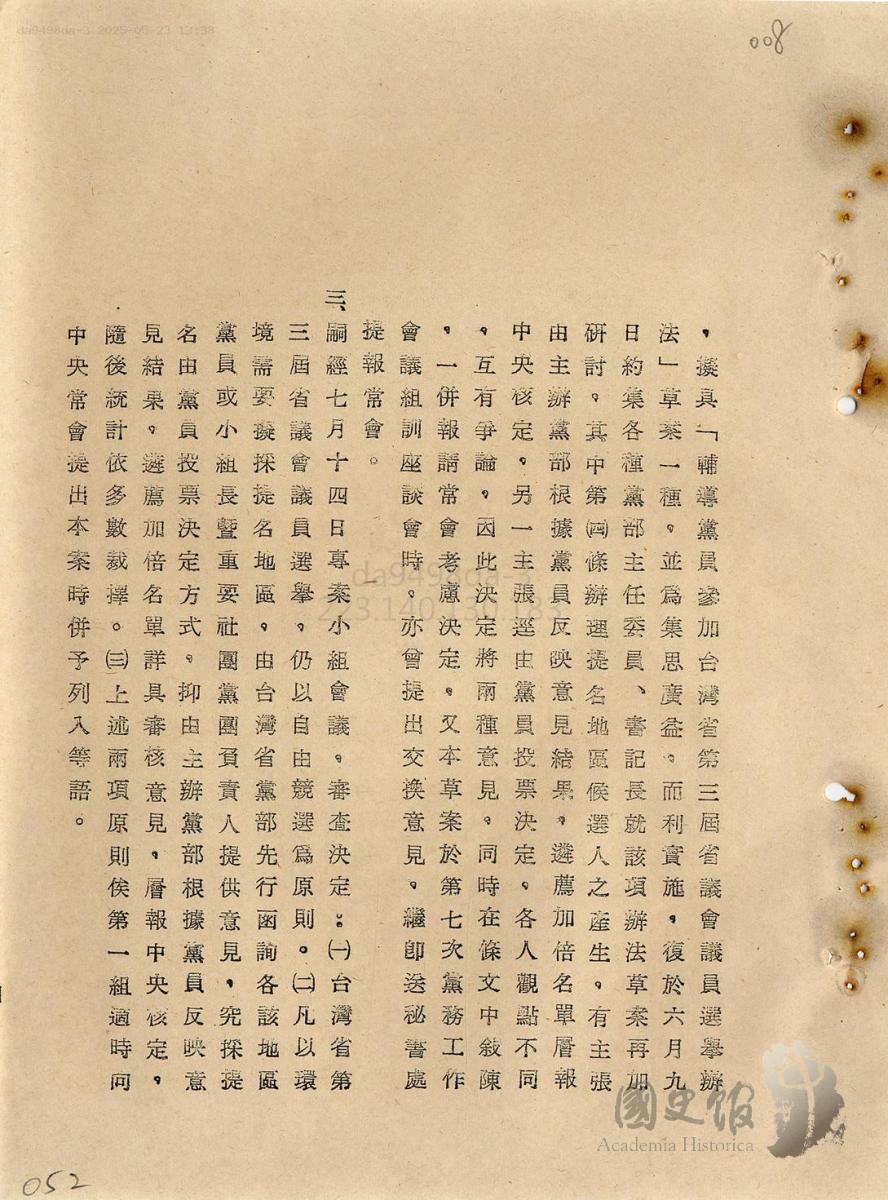 da9498da-3 2025-05-23 13:38
008
,擬具「輔導黨員參加台灣省第三屆省議會議員選舉辦
法」草案一種,並爲集思廣益,而利實施,復於六月九
日約集各種黨部主任委員、書記長就該項辦法草案再加
研討,其中第㈣條辦理提名地區候選人之產生,有主張
由主辦黨部根據黨員反映意見結果,遴薦加倍名單層報
中央核定,另一主張逕由黨員投票決定,各人觀點不同
,互有爭論,因此決定將兩種意見,同時在條文中敍陳
,一併報請常會考慮決定,又本草案於第七次黨務工作
會議組訓座談會時,亦曾提出交換意見,繼卽送秘書處
提報常會。
三、嗣經七月十四日專案小組會議,審查決定:㈠台灣省第
三屆省議會議員選舉,仍以自由競選爲原則。㈡凡以環
境需要擬採提名地區,由台灣省黨部先行函詢各該地區
黨員或小組長暨重要社團黨團負責人提供意見,究採提
名由黨員投票決定方式,抑由主辦黨部根據黨員反映意
見結果,遴薦加倍名單詳具審核意見,層報中央核定,
隨後統計依多數裁擇。㈢上述兩項原則俟第一組適時向
中央常會提出本案時併予列入等語。
da9498da-3
國史館
Academia Historica
052